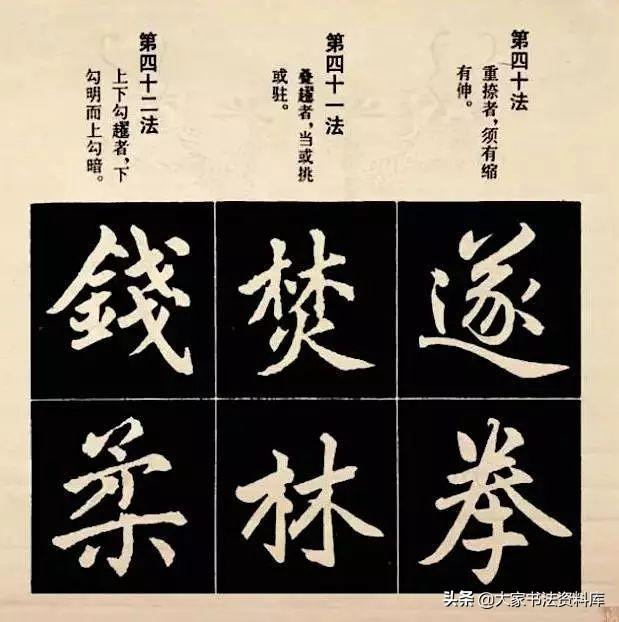 第四十法
重捺者，须有缩
有伸。
第四十一法
叠趯者，当或挑
或驻。
第四十二法
上下勾趯者，下
勾明而上勾暗。
遂
拳
焚
林
錢
柔
头条 @大家书法资料库